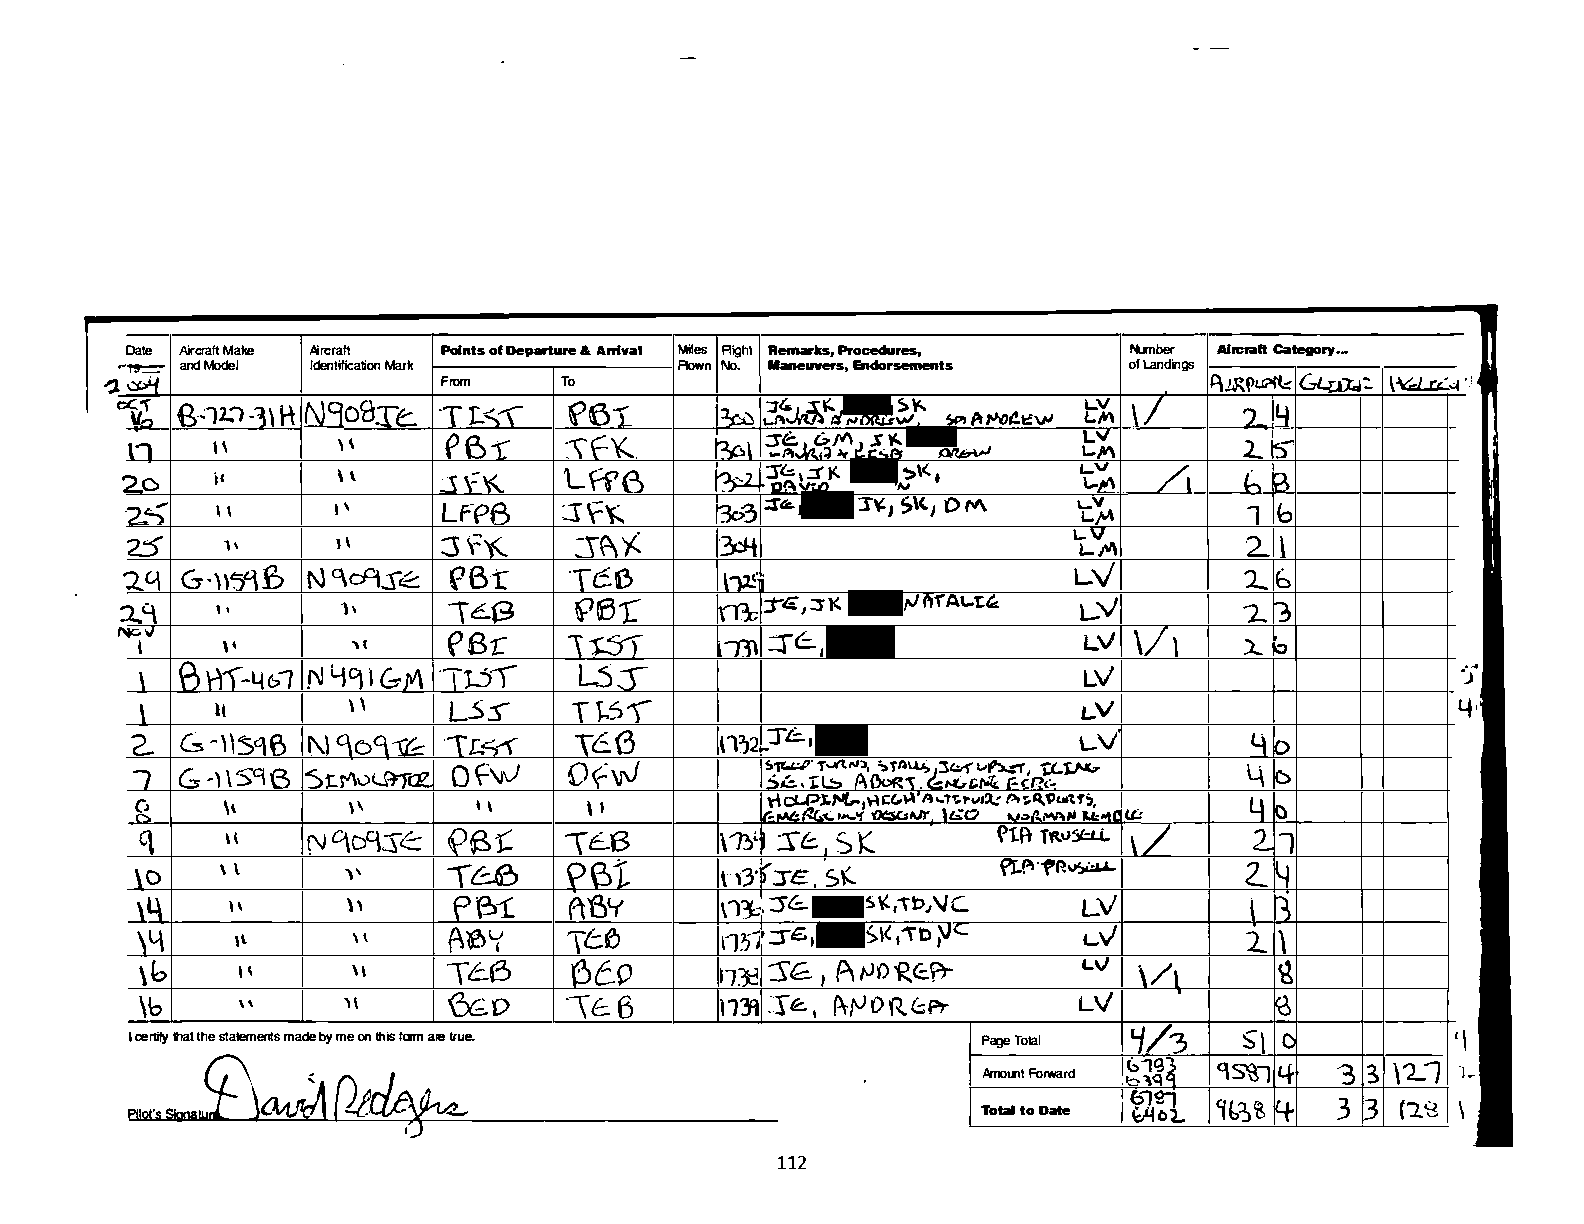 Date Aircraft Make and Model Aircraft Identification Mark Points of Departure & Arrival Miles Flown Flight No. Remarks, Procedures, Maneuvers, Endorsements Number of Landings Aircraft Category...
19
2004 From To AIRPLANE
OCT 16 B-727-31H N908JE TIST PBI 300 JE, JK SK LV LM 1/ 2 4
LAURA ANDREW, ANDREW
17 " " PBI JFK 301 JE, GM, JK LV LM 2 5
20 " " JFK LFPB 302 JE, JK SK, LV LM /1 6 8
DAVID N
25 " " LFPB JFK 303 JE, JK, SK, DM LV LM 7 6
25 " " JFK JAX 304 LV LM 2 1
29 G-1159B N909JE PBI TEB 1729 LV 2 6
29 " " TEB PBI 1730 JE, JK NATALIE LV 2 3
NOV 1 " " PBI TIST 1731 JE, LV 1/1 2 6
1 BHT-407 N491GM TIST LSJ LV
1 " " LSJ TIST LV 4
2 G-1159B N909JE TIST TEB 1732 JE, LV 4 0
7 G-1159B SIMULATOR DFW DFW STEEP TURNS, STALLS, JET UPSET, ICING 4 0
SE. ILS ABORT, ENGINE FIRE
8 " " " " HOLDING, HIGH ALTITUDE AIRPORTS, 4 0
EMERGENCY DESCENT, NORMAN
9 " N909JE PBI TEB 1734 JE, SK PIA TRUSELL 1/ 2 7
10 " " TEB PBI 1735 JE, SK PIA 2 4
14 " " PBI ABY 1736 JE SK, TD, VC LV 1 3
14 " " ABY TEB 1737 JE, SK, TD, VC LV 2 1
16 " " TEB BED 1738 JE, ANDREA LV 1/1 8
16 " " BED TEB 1739 JE, ANDREA LV 8
I certify that the statements made by me on this form are true. Page Total 4/3 51 0
Amount Forward 6783 6399 9587 4 3 3 127
Pilot's Signature David Rodgers Total to Date 6787 6402 9638 4 3 3 128 1
112